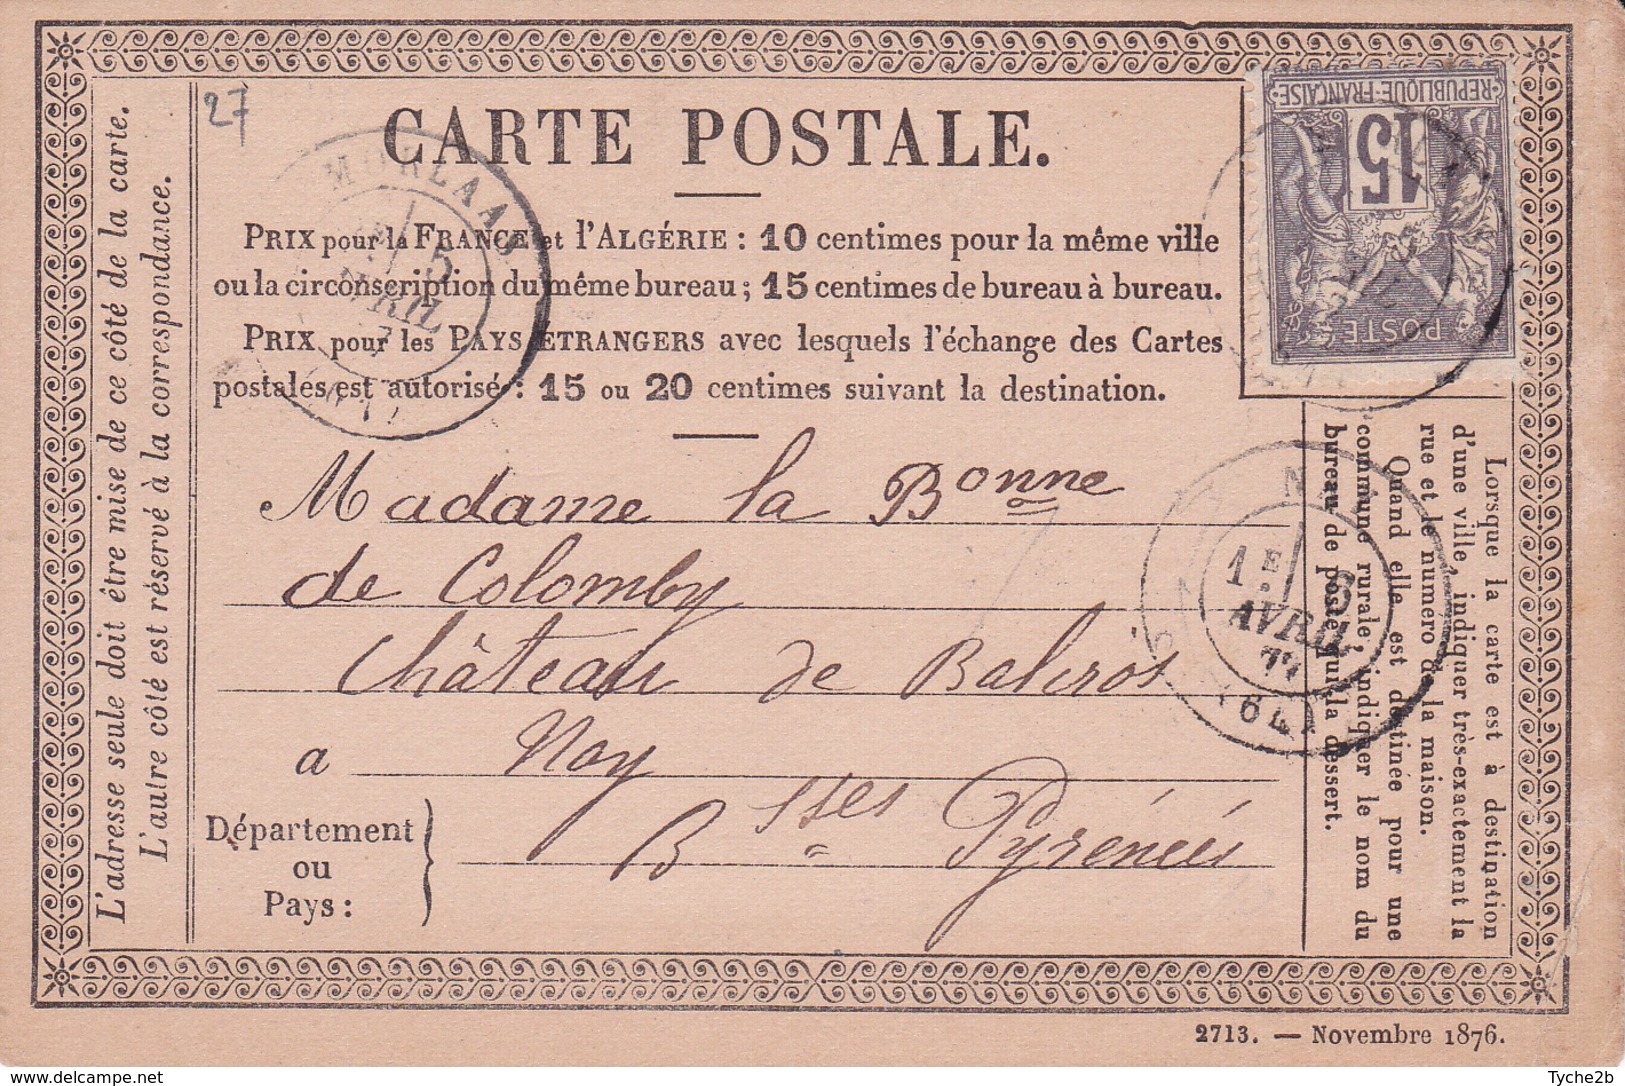 27
CARTE POSTALE.
PRIX pour la FRANCE et l'ALGÉRIE : 10 centimes pour la même ville
ou la circonscription du même bureau ; 15 centimes de bureau à bureau.
PRIX pour les PAYS ÉTRANGERS avec lesquels l'échange des Cartes
postales est autorisé : 15 ou 20 centimes suivant la destination.
L'adresse seule doit être mise de ce côté de la carte.
L'autre côté est réservé à la correspondance.
MORLAAS
5
AVRIL
REPUBLIQUE FRANÇAISE
15
POSTE
Madame la Bonne
de Colomby
Château de Balcros
a Noy
Département
ou
Pays :
Bsses Pyrénées
1E 6
AVRIL
77
(64)
Lorsque la carte est à destination
d'une ville, indiquer très-exactement la
rue et le numéro de la maison.
Quand elle est destinée pour une
commune rurale, indiquer le nom du
bureau de poste qui la dessert.
2713. — Novembre 1876.
www.delcampe.net
Tyche2b